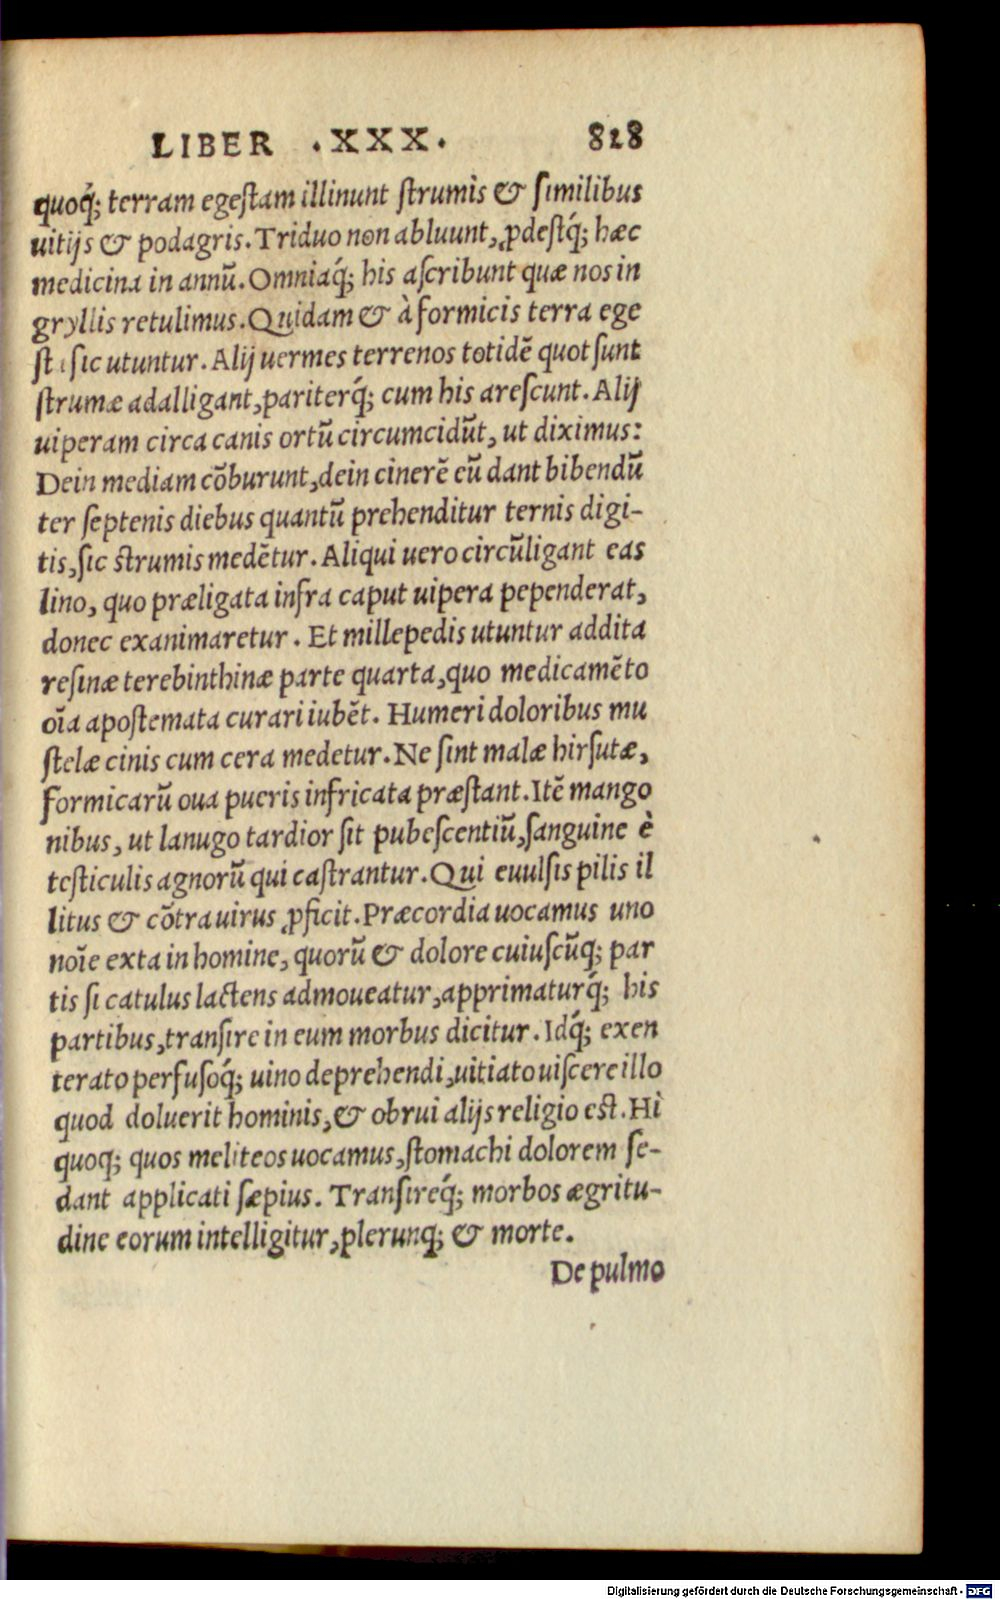 LIBER .XXX. 828
quoq́; terram egeſtam illinunt ſtrumis & ſimilibus
uitijs & podagris. Triduo non abluunt, ꝓdeſtq́; hæc
medicina in annū. Omniaq́; his aſcribunt quæ nos in
gryllis retulimus. Quidam & à formicis terra ege
ſta ſic utuntur. Alij uermes terrenos totidē quot ſunt
ſtrumæ adalligant, pariterq́; cum his areſcunt. Alij
uiperam circa canis ortū circumcidūt, ut diximus:
Dein mediam cōburunt, dein cinerē eū dant bibendū
ter ſeptenis diebus quantū prehenditur ternis digi-
tis, ſic ſtrumis medētur. Aliqui uero circūligant eas
lino, quo præligata infra caput uipera pependerat,
donec exanimaretur. Et millepedis utuntur addita
reſinæ terebinthinæ parte quarta, quo medicamēto
oīa apoſtemata curari iubēt. Humeri doloribus mu
ſtelæ cinis cum cera medetur. Ne ſint malæ hirſutæ,
formicarū oua pueris infricata præſtant. Itē mango
nibus, ut lanugo tardior ſit pubeſcentiū, ſanguine è
teſticulis agnorū qui caſtrantur. Qui euulſis pilis il
litus & cōtra uirus ꝓficit. Præcordia uocamus uno
noīe exta in homine, quorū & dolore cuiuſcūq; par
tis ſi catulus lactens admoueatur, apprimaturq́; his
partibus, tranſire in eum morbus dicitur. Idq́; exen
terato perfuſoq́; uino deprehendi, uitiato uiſcere illo
quod doluerit hominis, & obrui alijs religio eſt. Hi
quoq; quos meliteos uocamus, ſtomachi dolorem ſe-
dant applicati ſæpius. Tranſireq́; morbos ægritu-
dine eorum intelligitur, plerunq; & morte.
De pulmo
Digitalisierung gefördert durch die Deutsche Forschungsgemeinschaft - DFG